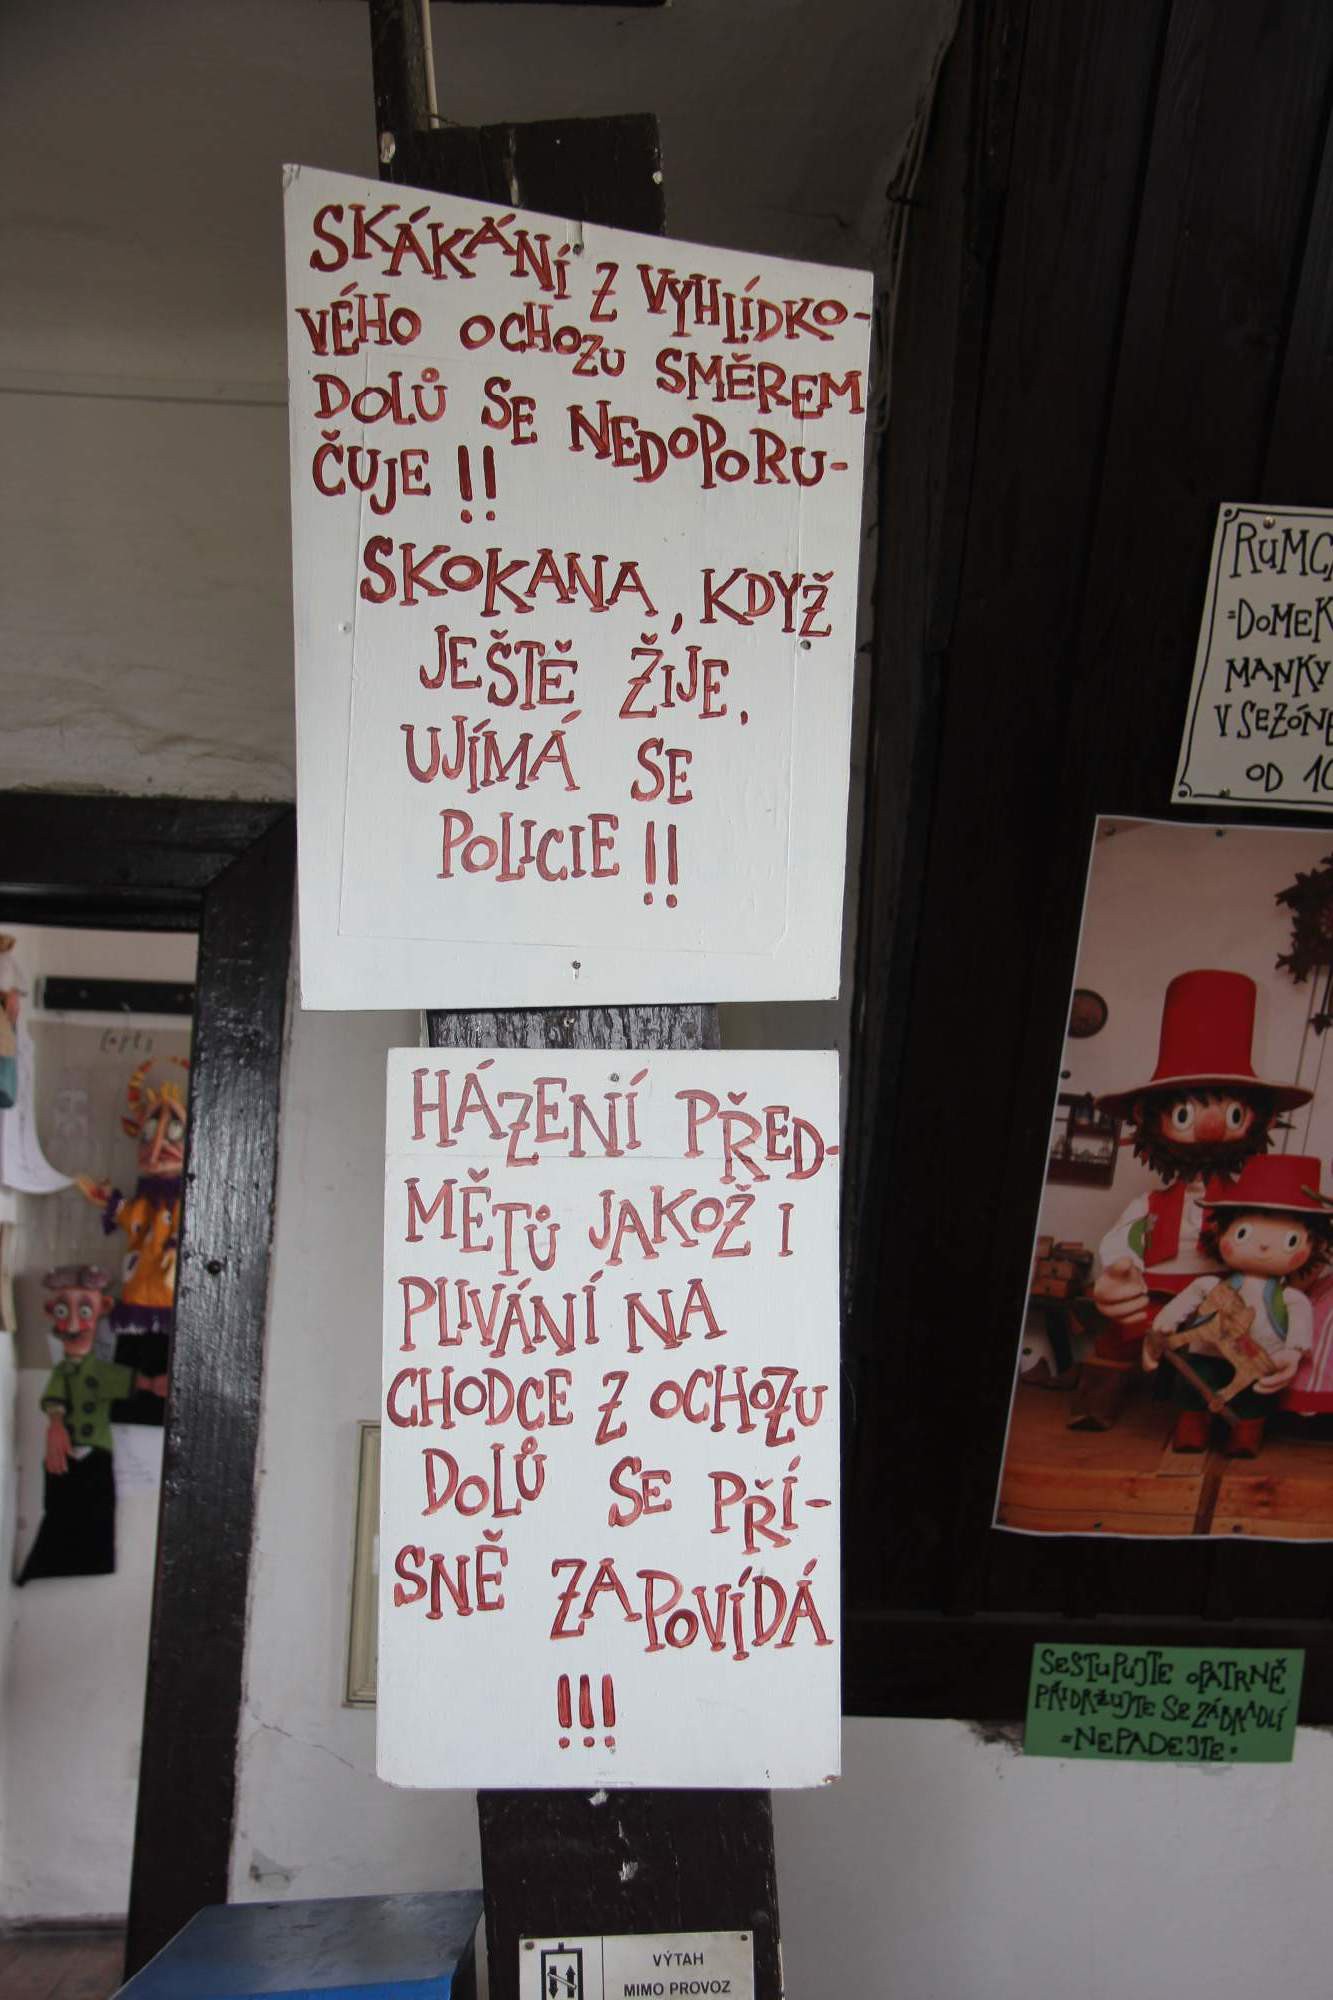 SKÁKÁNÍ Z VYHLÍDKO-
VÉHO OCHOZU SMĚREM
DOLŮ SE NEDOPORU-
ČUJE !!
SKOKANA, KDYŽ
JEŠTĚ ŽIJE,
UJÍMÁ SE
POLICIE !!
HÁZENÍ PŘED-
MĚTŮ JAKOŽ I
PLIVÁNÍ NA
CHODCE Z OCHOZU
DOLŮ SE PŘÍ-
SNĚ ZAPOVÍDÁ
!!!
VÝTAH
MIMO PROVOZ
=DOMEK
MANKY
V SEZÓNE
OD 10
SESTUPUJTE OPATRNĚ
PŘIDRŽUJTE SE ZÁBRADLÍ
=NEPADEJTE=